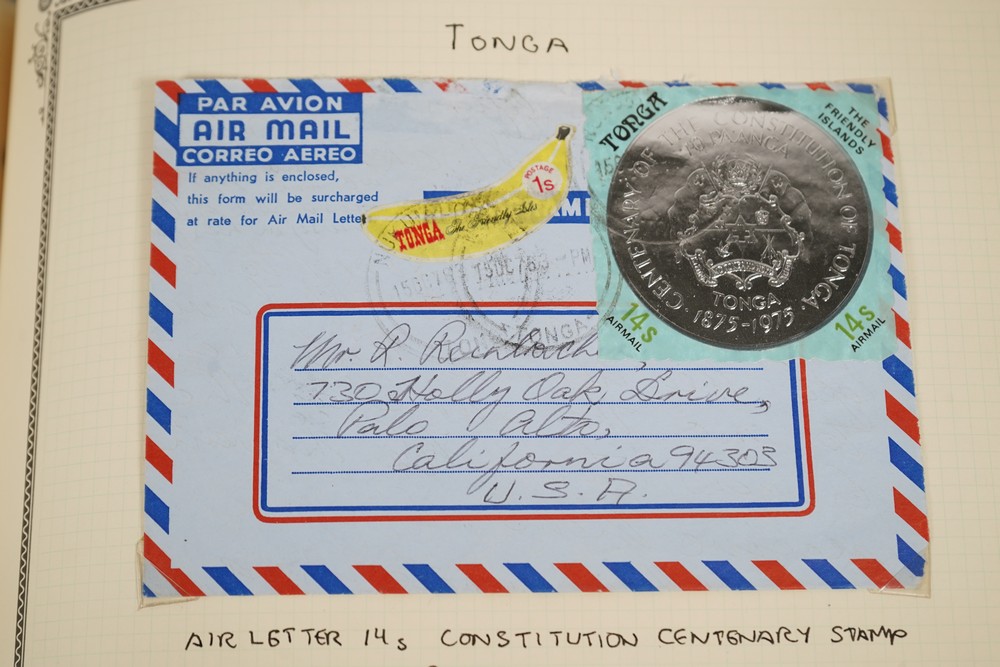 TONGA
PAR AVION
AIR MAIL
CORREO AEREO
If anything is enclosed,
this form will be surcharged
at rate for Air Mail Letter
POSTAGE
1s
TONGA The Friendly Isles
TONGA
THE
FRIENDLY
ISLANDS
CENTENARY OF THE CONSTITUTION OF TONGA
TONGA
1875-1975
14s
AIRMAIL
14s
AIRMAIL
Mr. R.
730 Holly Oak Drive,
Palo Alto,
California 94303
U. S. A.
AIR LETTER 14s CONSTITUTION CENTENARY STAMP